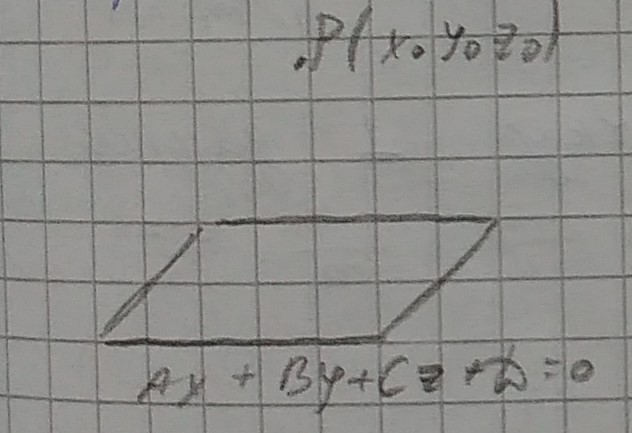 .P(x₀ y₀ z₀)
Ax + By + Cz + D = 0